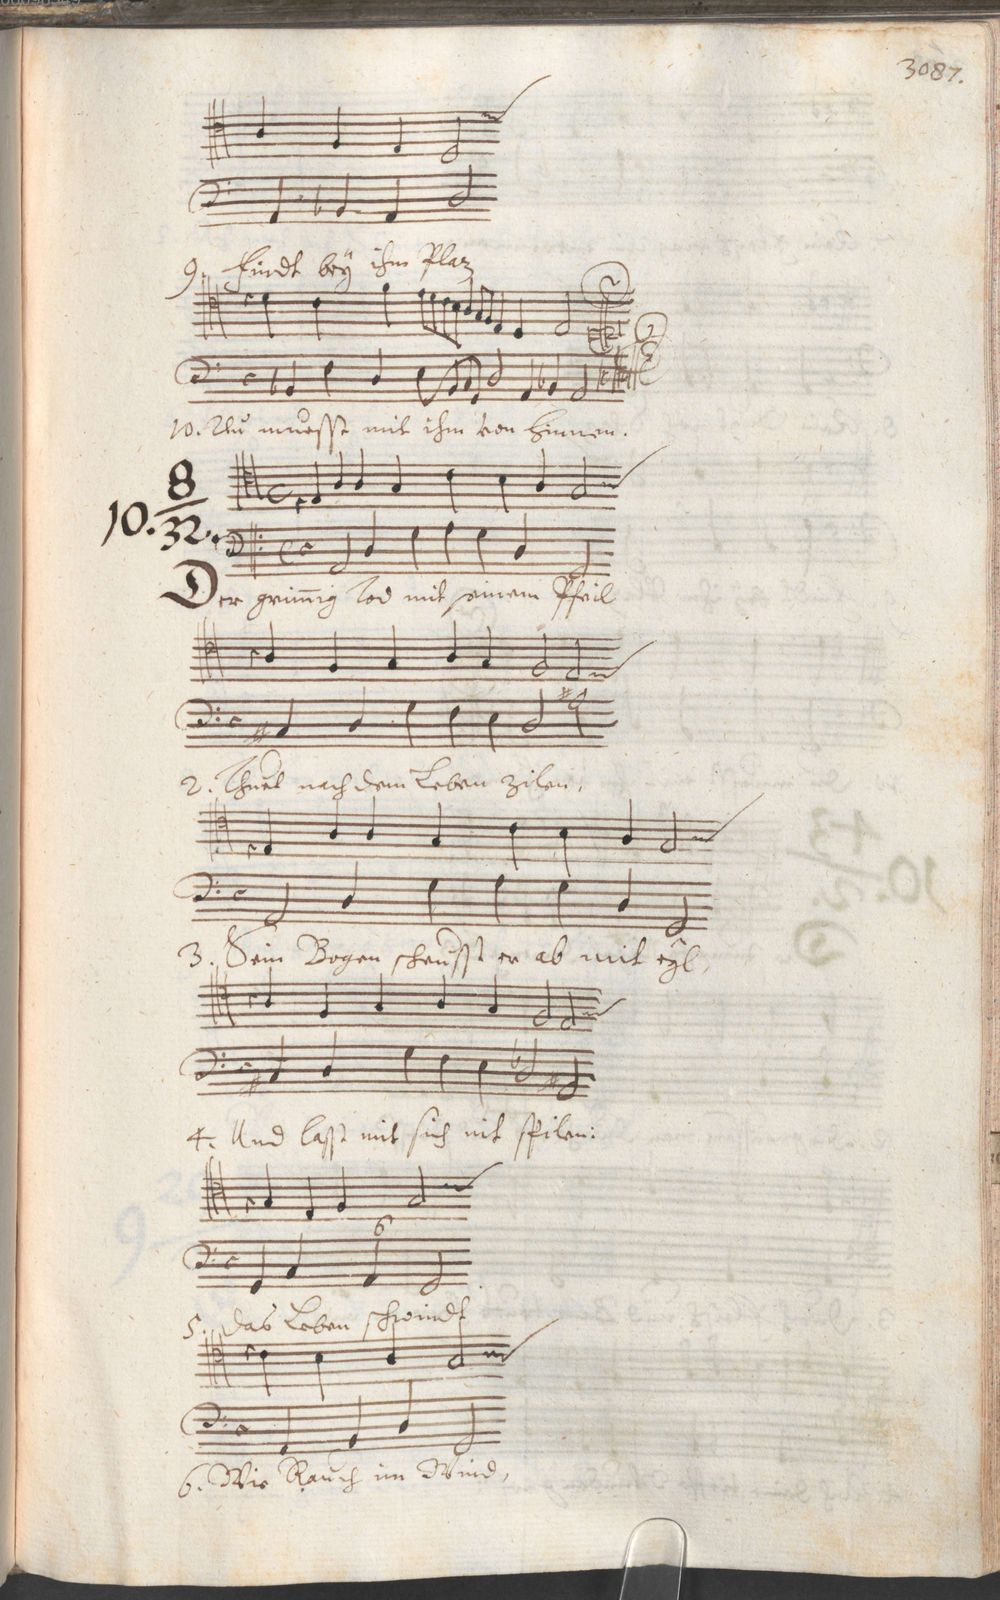 3087.
9. findt beÿ ihm Plaz
10. Nu muesst mit ihm von hinnen.
10. 8/32.
Der grim̄ig Tod mit seinem Pfeil
2. Thuet nach dem Leben zilen,
3. Sein Bogen scheusst er ab mit eÿl,
4. Und lasst mit sich nit spilen:
6
5. das Leben schwindt
6. Wie Rauch im Wind,